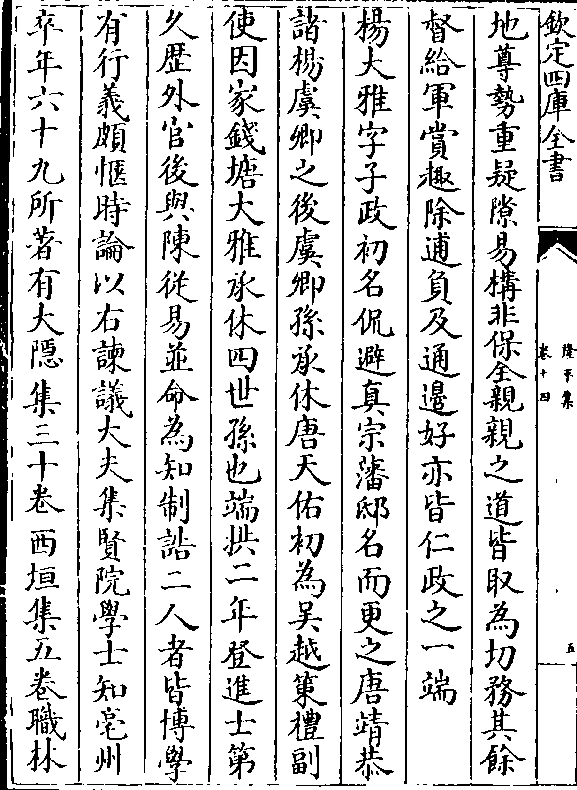 欽定四庫全書
隆平集
卷十四
五
地尊勢重疑隙易構非保全親親之道皆取為切務其餘
督給軍賞趣除逋負及通邊好亦皆仁政之一端
楊大雅字子政初名侃避真宗藩邸名而更之唐靖恭
諸楊虞卿之後虞卿孫承休唐天佑初為吳越策禮副
使因家錢塘大雅承休四世孫也端拱二年登進士第
久歴外官後與陳從易並命為知制誥二人者皆博學
有行義頗愜時論以右諫議大夫集賢院學士知亳州
卒年六十九所著有大隠集三十卷西垣集五卷職林